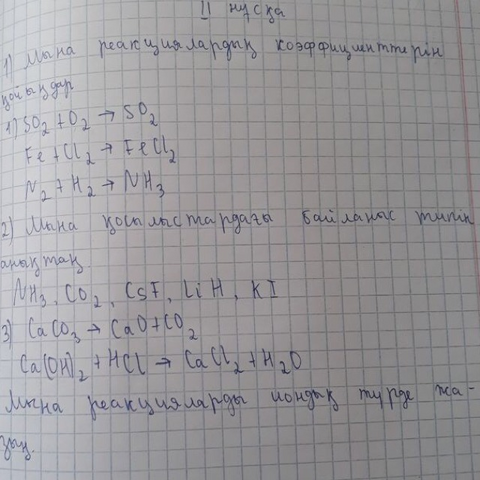 II нұсқа
1) Мына реакциялардың коэффициенттерін
қойыңдар
1) SO₂ + O₂ → SO₂
Fe + Cl₂ → FeCl₂
N₂ + H₂ → NH₃
2) Мына қосылыстардағы байланыс типін
анықтаң.
NH₃, CO₂, CsF, LiH, KI
3) CaCO₃ → CaO + CO₂
Ca(OH)₂ + HCl → CaCl₂ + H₂O
Мына реакцияларды иондық түрде жа-
зың.